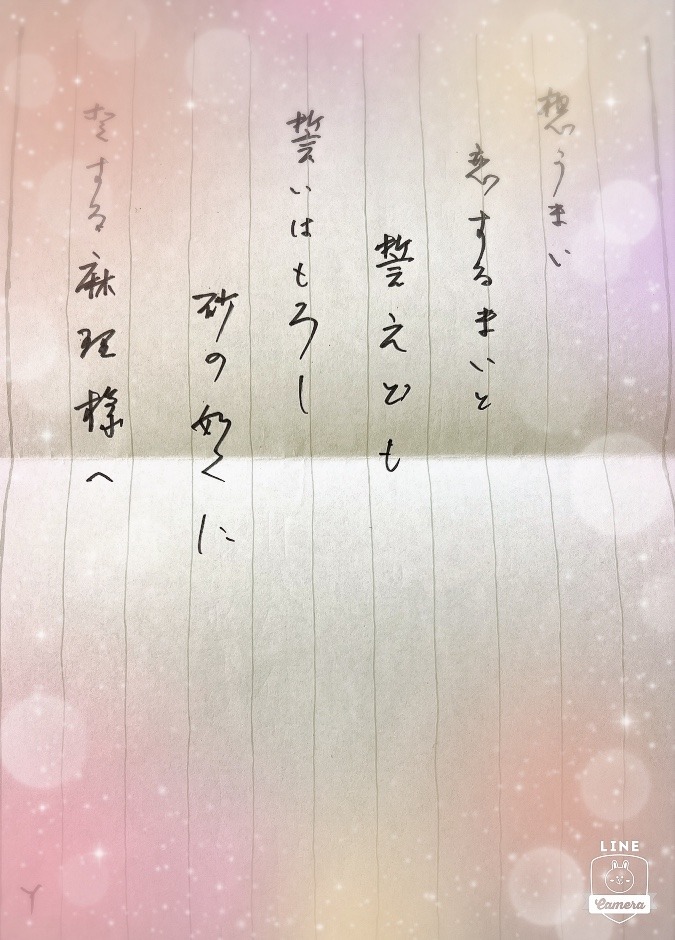 想うまい
恋するまいと
誓えども
誓いはもろし
砂の如くに
する麻理様へ
Y
LINE
Camera